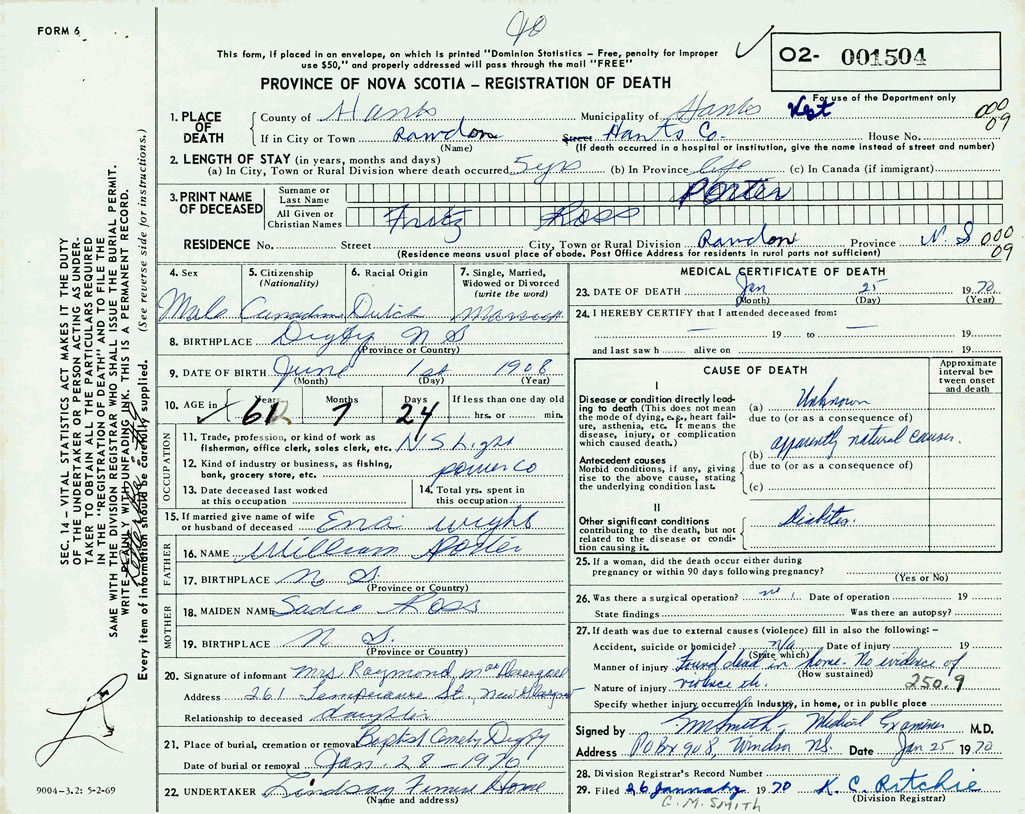 FORM 6
40
This form, if placed in an envelope, on which is printed "Dominion Statistics – Free, penalty for improper
use $50," and properly addressed will pass through the mail "FREE"
PROVINCE OF NOVA SCOTIA – REGISTRATION OF DEATH
02- 001504
For use of the Department only
1. PLACE OF DEATH County of Hants Municipality of Hants West 000
If in City or Town Rawdon Street Hants Co. House No. 09
(Name) (If death occurred in a hospital or institution, give the name instead of street and number)
2. LENGTH OF STAY (in years, months and days)
(a) In City, Town or Rural Division where death occurred 5 yrs (b) In Province life (c) In Canada (if immigrant)
3. PRINT NAME OF DECEASED Surname or Last Name Porter
All Given or Christian Names Fritz Ross
RESIDENCE No. Street City, Town or Rural Division Rawdon Province N.S 000
(Residence means usual place of abode. Post Office Address for residents in rural parts not sufficient) 09
4. Sex 5. Citizenship (Nationality) 6. Racial Origin 7. Single, Married, Widowed or Divorced (write the word)
Male Canadian Dutch Married
8. BIRTHPLACE Digby N S
(Province or Country)
9. DATE OF BIRTH June 1st 1908
(Month) (Day) (Year)
10. AGE in Years Months Days If less than one day old
61 7 24 hrs. or min.
OCCUPATION
11. Trade, profession, or kind of work as fisherman, office clerk, sales clerk, etc. N S Light
12. Kind of industry or business, as fishing, bank, grocery store, etc. power Co
13. Date deceased last worked at this occupation
14. Total yrs. spent in this occupation
15. If married give name of wife or husband of deceased Ena Wright
FATHER
16. NAME William Porter
17. BIRTHPLACE N. S.
(Province or Country)
MOTHER
18. MAIDEN NAME Sadie Ross
19. BIRTHPLACE N. S.
(Province or Country)
20. Signature of informant Mrs Raymond
Address 261 Temperance St., New Glasgow
Relationship to deceased daughter
21. Place of burial, cremation or removal Baptist Cemetry Digby
Date of burial or removal Jan. 28 - 1970
22. UNDERTAKER Lindsay Funeral Home
(Name and address)
MEDICAL CERTIFICATE OF DEATH
23. DATE OF DEATH Jan 25 1970
(Month) (Day) (Year)
24. I HEREBY CERTIFY that I attended deceased from:
19 to 19
and last saw h alive on 19
CAUSE OF DEATH
Approximate interval between onset and death
I
Disease or condition directly leading to death (This does not mean the mode of dying, e.g., heart failure, asthenia, etc. It means the disease, injury, or complication which caused death.)
(a) Unknown
due to (or as a consequence of)
apparently natural causes.
Antecedent causes
Morbid conditions, if any, giving rise to the above cause, stating the underlying condition last.
(b)
due to (or as a consequence of)
(c)
II
Other significant conditions contributing to the death, but not related to the disease or condition causing it. Diabetes.
25. If a woman, did the death occur either during
pregnancy or within 90 days following pregnancy?
(Yes or No)
26. Was there a surgical operation? no Date of operation 19
State findings Was there an autopsy?
27. If death was due to external causes (violence) fill in also the following: –
Accident, suicide or homicide? n/a Date of injury 19
(State which)
Manner of injury Found dead in home. No evidence of
(How sustained)
Nature of injury violence etc. 250.9
Specify whether injury occurred in Industry, in home, or in public place
Signed by Smith Medical Examiner M.D.
Address PO Box 908, Windsor NS. Date Jan 25 1970
28. Division Registrar's Record Number
29. Filed 26 January 1970 K. C. Ritchie
(Division Registrar)
G. M. SMITH
SEC. 14 – VITAL STATISTICS ACT MAKES IT THE DUTY
OF THE UNDERTAKER OR PERSON ACTING AS UNDER-
TAKER TO OBTAIN ALL THE PARTICULARS REQUIRED
IN THE "REGISTRATION OF DEATH" AND TO FILE THE
SAME WITH THE DIVISION REGISTRAR WHO SHALL ISSUE THE BURIAL PERMIT.
WRITE PLAINLY WITH UNFADING INK. THIS IS A PERMANENT RECORD.
Every item of information should be carefully supplied. (See reverse side for instructions.)
9004-3.2: 5-2-69